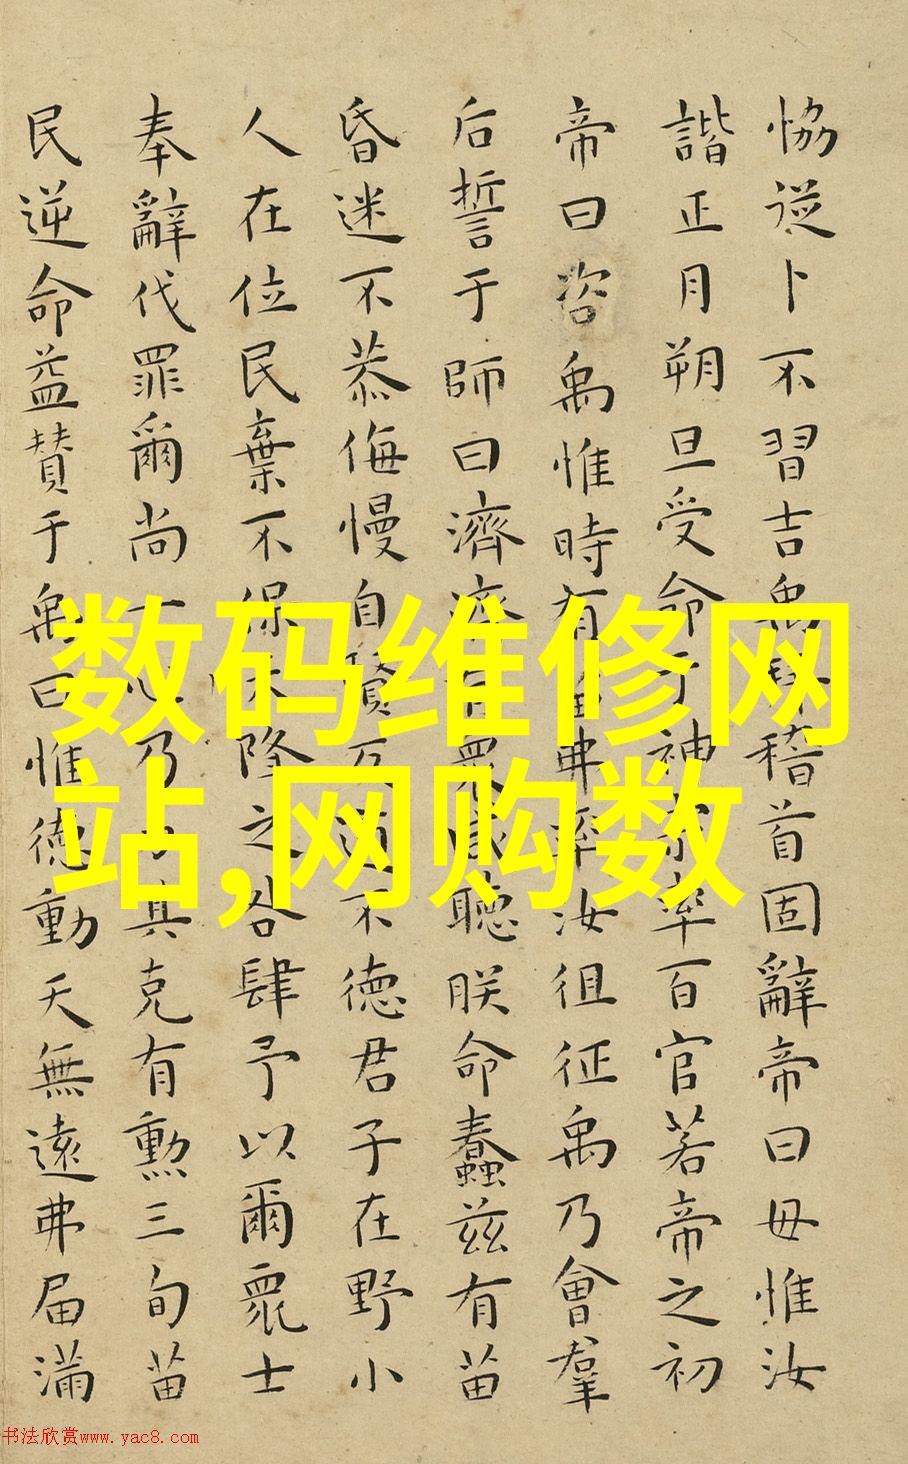 恊從卜不習吉禹拜稽首固辭帝曰毋惟汝
諧正月朔旦受命于神宗率百官若帝之初
帝曰咨禹惟時有苗弗率汝徂征禹乃會羣
后誓于師曰濟濟有眾咸聽朕命蠢茲有苗
昏迷不恭侮慢自賢反道不德君子在野小
人在位民棄不保天降之咎肆予以爾眾士
奉辭伐罪爾尚一心乃力其克有勳三旬苗
民逆命益贊于禹曰惟德動天無遠弗届滿
数码维修网
站,网购数
书法欣赏www.yac8.com